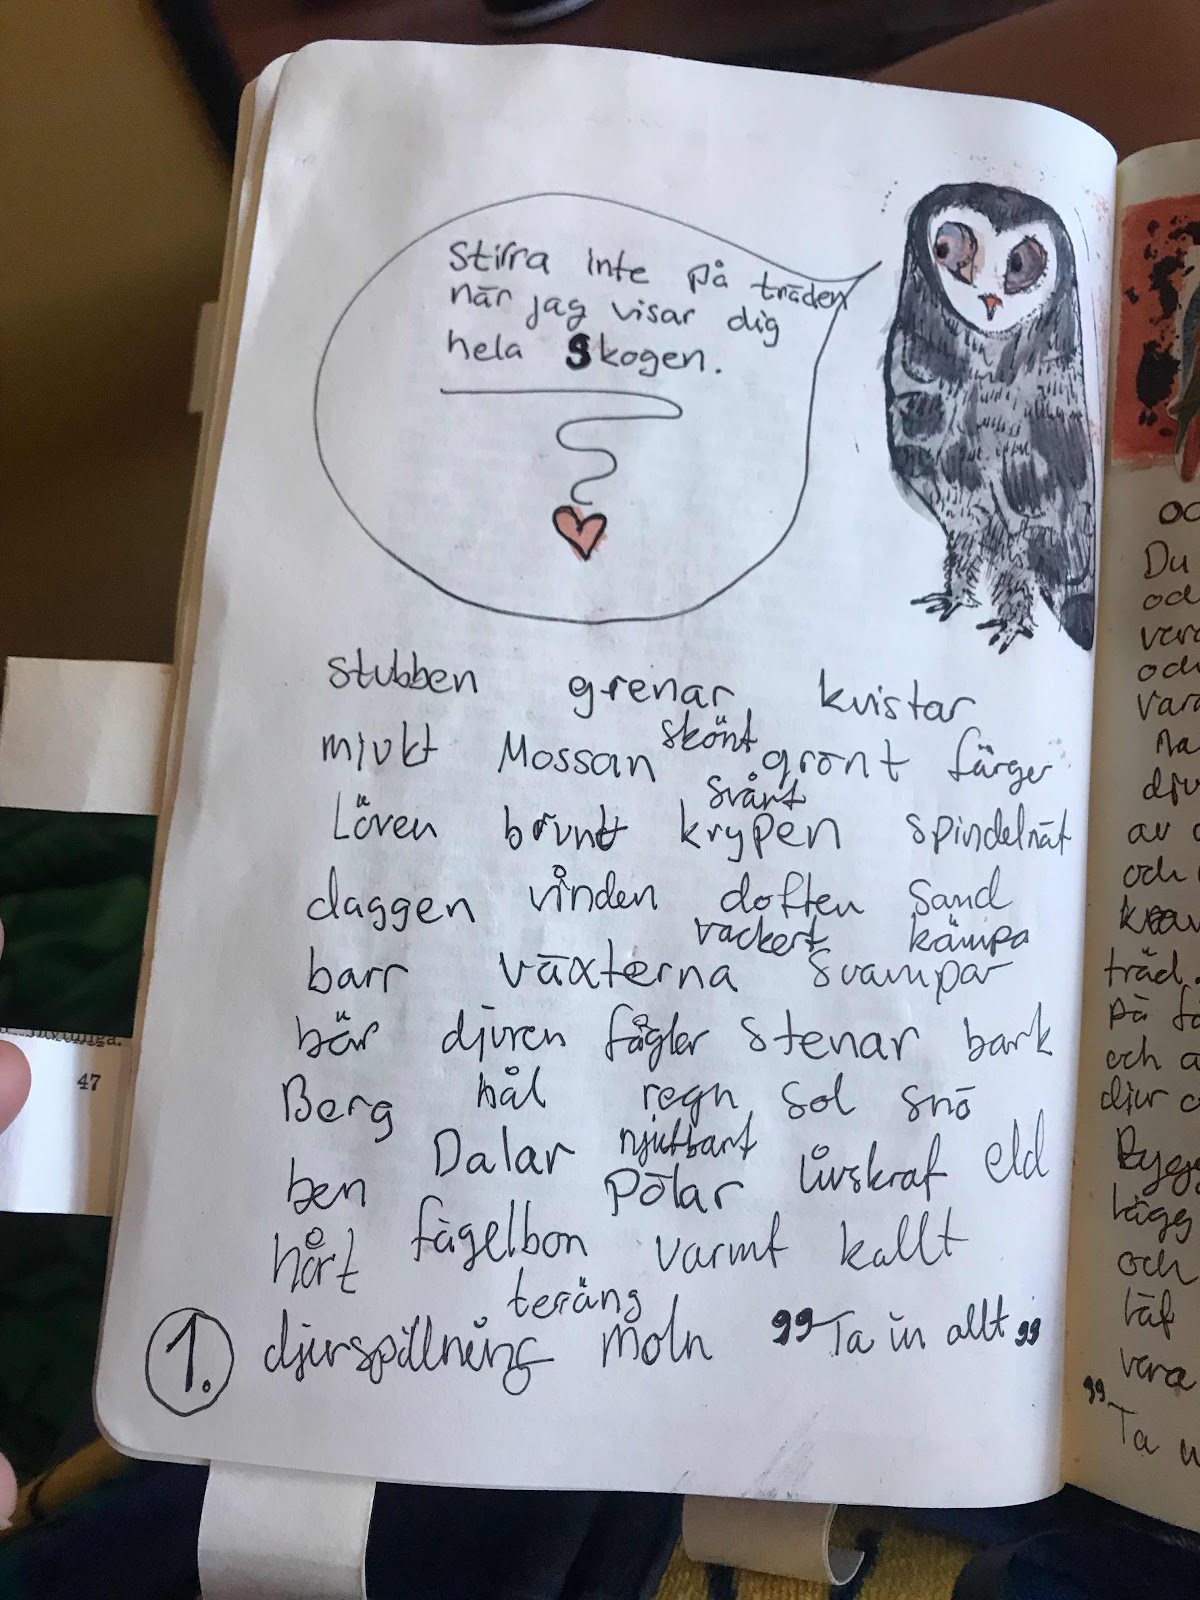 Stirra inte på träden
när jag visar dig
hela Skogen.
stubben grenar kvistar
mjukt Mossan skönt grönt färger
svårt
Löven brunt krypen spindelnät
daggen vinden doften sand
vackert kämpa
barr växterna svampar
bär djuren fågler stenar bark
Berg hål regn sol snö
Dalar njutbart
ben pölar livskraf eld
hårt fågelbon varmt kallt
teräng
1. djurspillning moln "Ta in allt"
47
Du
och
och
av
och
träd.
på
och
djur
och
vara
"Ta